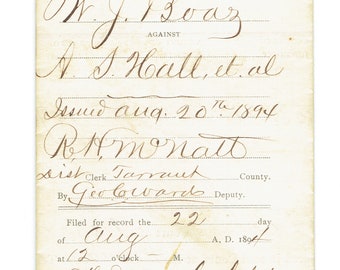 W. J. Boaz
AGAINST
A. S. Hall, et al
Issued Aug. 20th 1894
R. H. McNatt
Dist Clerk Tarrant County.
By Geo C. Wards Deputy.
Filed for record the 22 day
of Aug A. D. 1894
at 12 o'clock M.